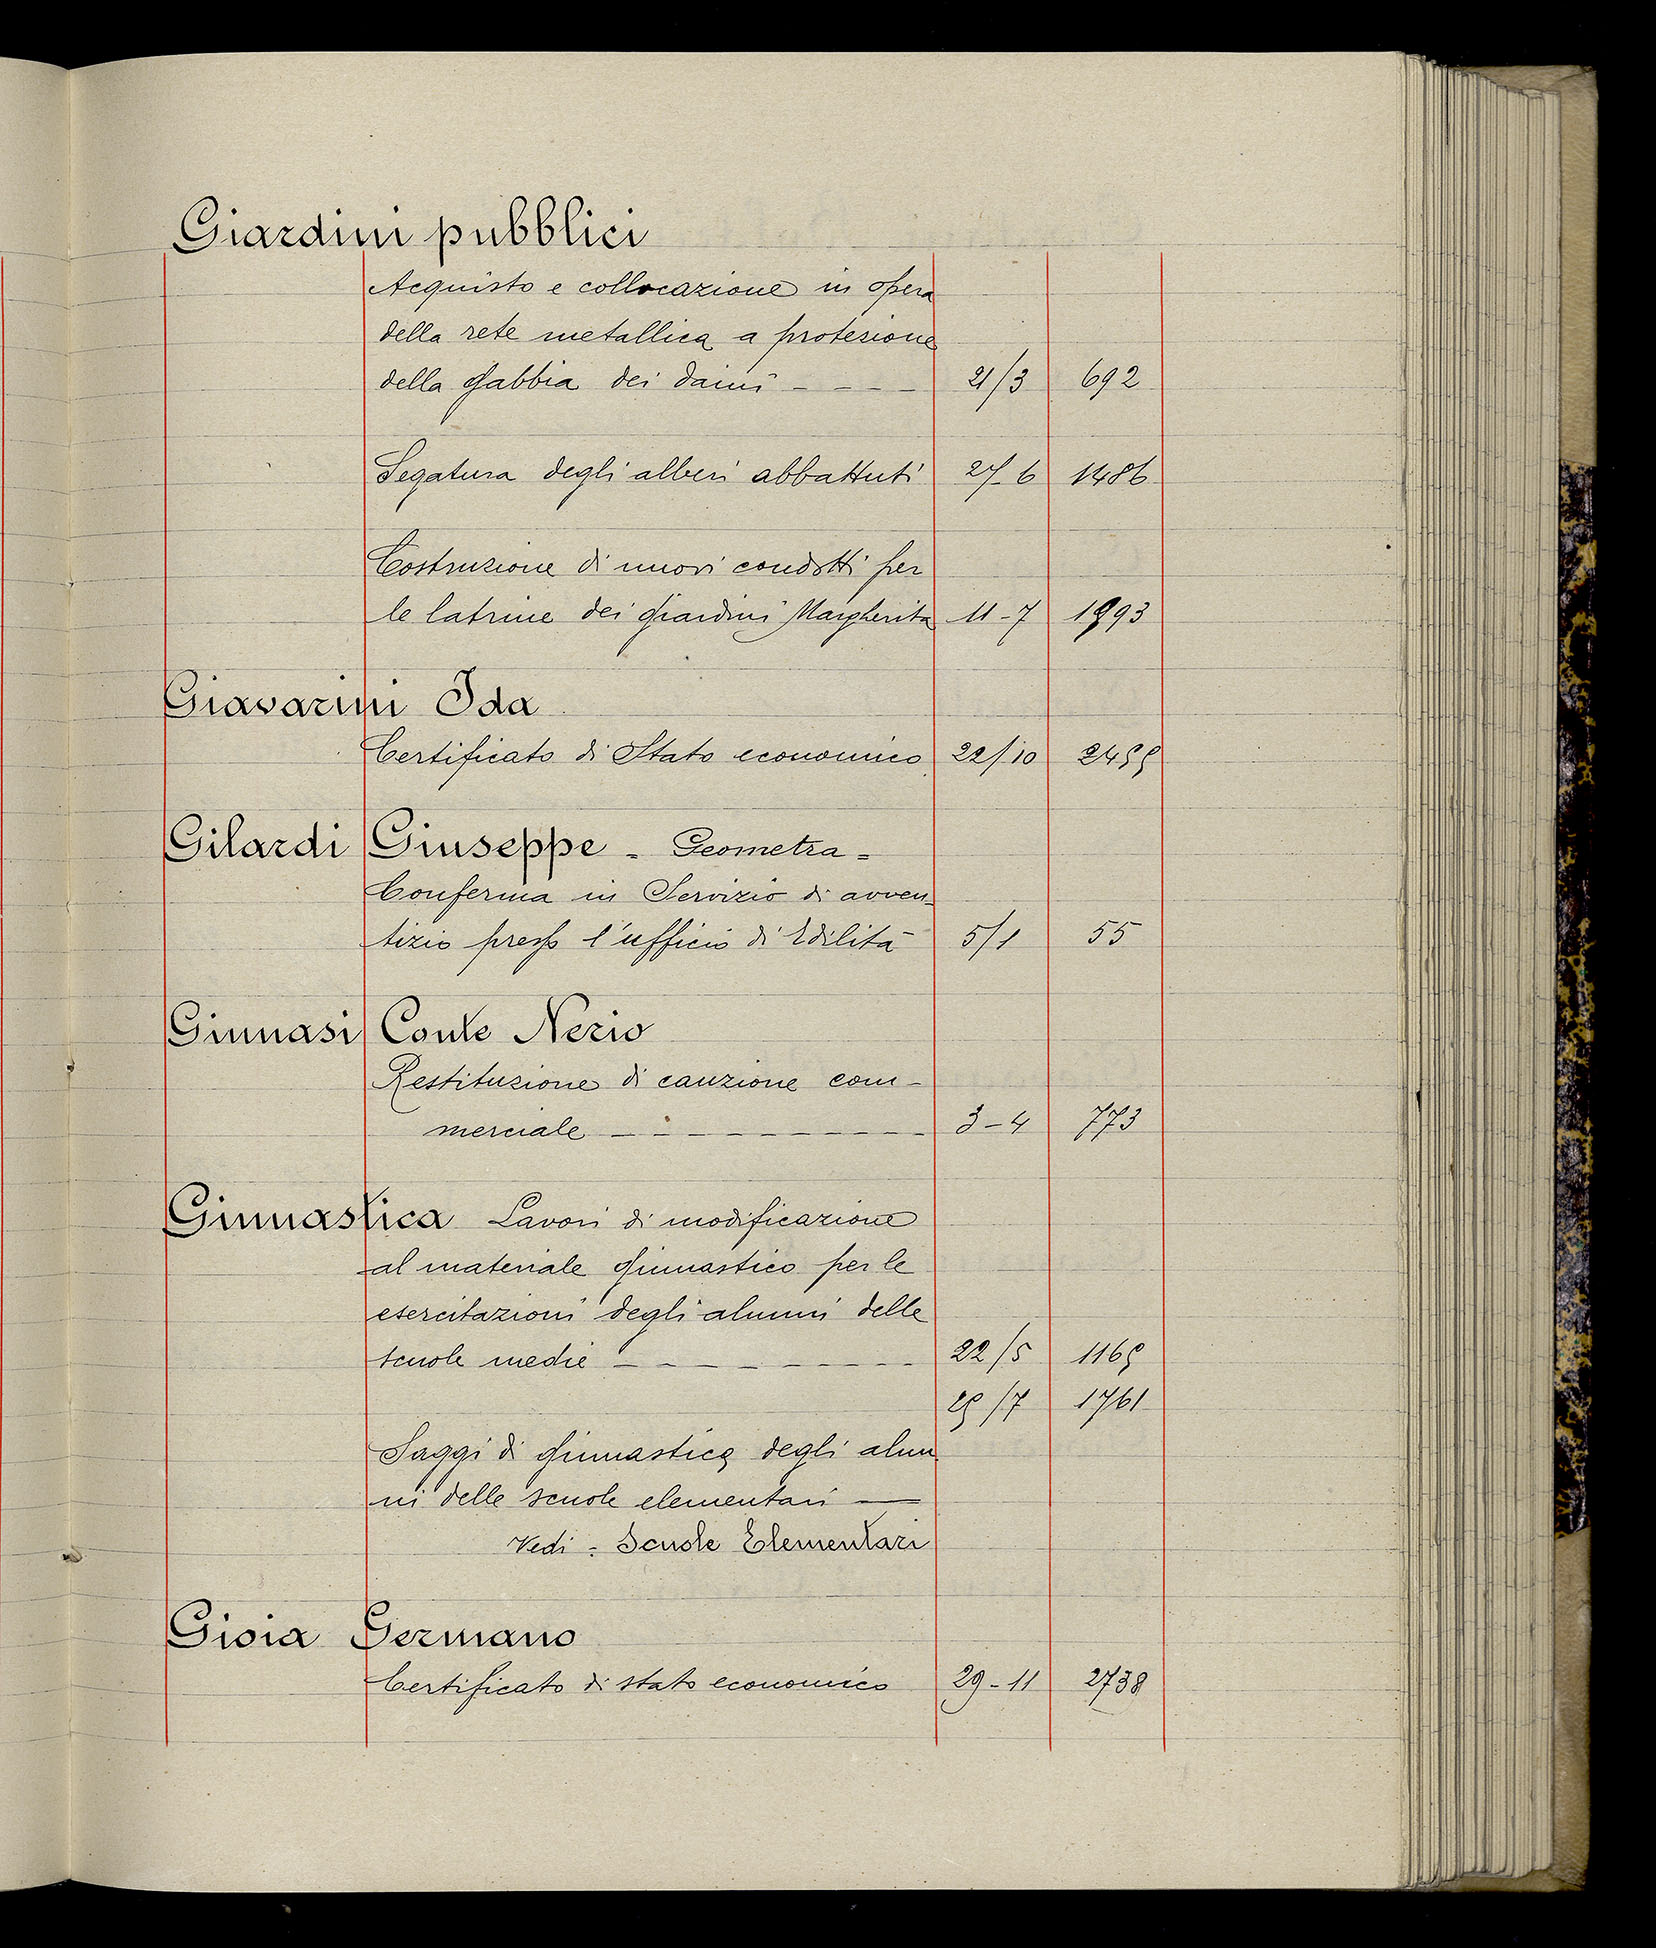 Giardini pubblici
Acquisto e collocazione in opera
della rete metallica a protezione
della gabbia dei daini - — - — 21/3 692
Segatura degli alberi abbattuti 27-6 1486
Costruzione di nuovi condotti per
le latrine dei giardini Margherita 11-7 1993
Giavarini Ida
Certificato di Stato economico 22/10
Gilardi Giuseppe - Geometra -
Conferma in Servizio di avven-
tizio presso l'ufficio di Edilità 5/1 55
Ginnasi Conte Nerio
Restituzione di cauzione com-
merciale — - — - — - — 3-4 773
Ginnastica Lavori di modificazione
al materiale ginnastico per le
esercitazioni degli alunni delle
scuole medie — - — - — - — 22/5 1169
/7 1761
Saggi di ginnastica degli alun
ni delle scuole elementari —
Vedi : Scuole Elementari
Gioia Germano
Certificato di stato economico 29-11 2738